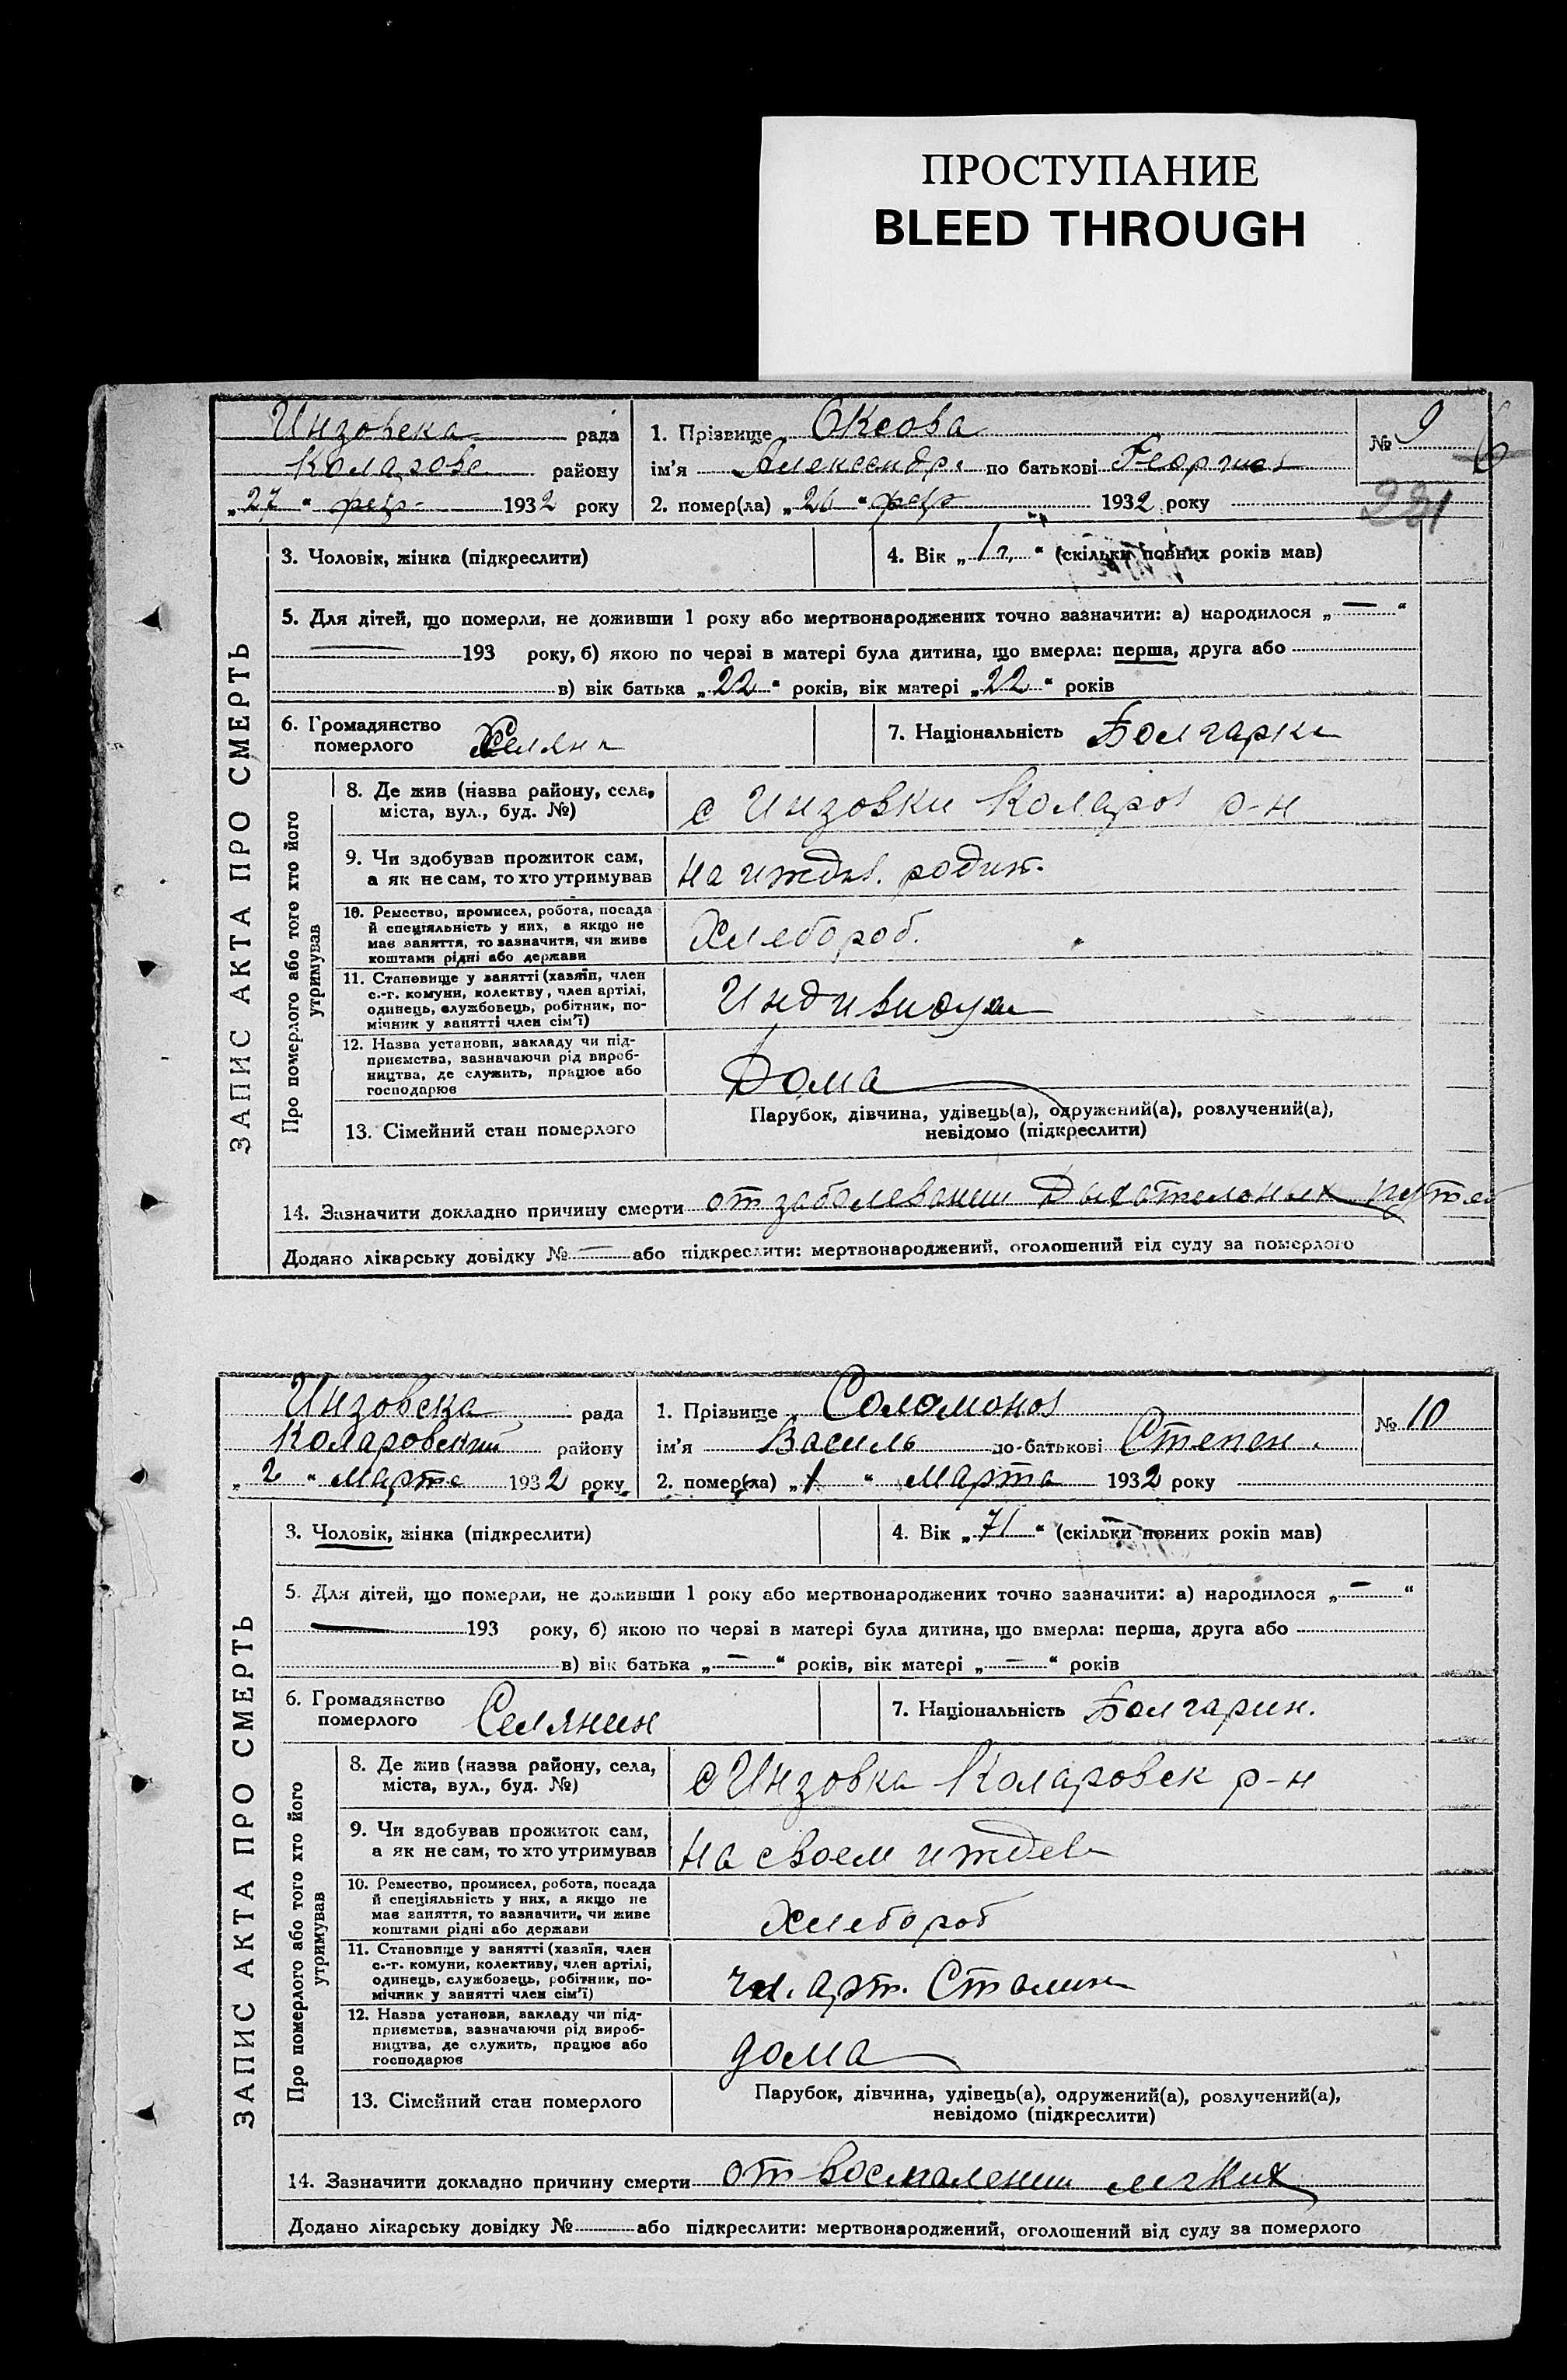 ПРОСТУПАНИЕ
BLEED THROUGH
Инзовска рада
1. Прізвище Оксова
№ 9
6
Коларовс району
ім'я Александра по батькові Георгиев
„27“ февр 1932 року
2. помер(ла) „26“ февр 1932 року
ЗАПИС АКТА ПРО СМЕРТЬ
3. Чоловік, жінка (підкреслити)
4. Вік „1 г.“ (скільки повних років мав)
5. Для дітей, що померли, не доживши 1 року або мертвонароджених точно зазначити: а) народилося „—“
— 193 року, б) якою по черзі в матері була дитина, що вмерла: перша, друга або
в) вік батька „22“ років, вік матері „22“ років
6. Громадянство
померлого Селянк
7. Національність Болгарка
Про померлого або того хто його
утримував
8. Де жив (назва району, села,
міста, вул., буд. №)
с Инзовки Коларов р-н
9. Чи здобував прожиток сам,
а як не сам, то хто утримував
на иждив. родит.
10. Ремество, промисел, робота, посада
й спеціяльність у них, а якщо не
має заняття, то зазначити, чи живе
коштами рідні або держави
Хлебороб.
11. Становище у занятті (хазяїн, член
с.-г. комуни, колектву, член артілі,
одинець, службовець, робітник, по-
мічник у занятті член сім'ї)
Индивидуал
12. Назва установи, закладу чи під-
приємства, зазначаючи рід вироб-
ництва, де служить, працює або
господарює
Дома
13. Сімейний стан померлого
Парубок, дівчина, удівець(а), одружений(а), розлучений(а),
невідомо (підкреслити)
14. Зазначити докладно причину смерти от заболевании Дыхательных путей
Додано лікарську довідку № — або підкреслити: мертвонароджений, оголошений від суду за померлого
Инзовска рада
1. Прізвище Соломонов
№ 10
Коларовский району
ім'я Василь по-батькові Степан.
„2“ Марта 1932 року
2. помер(ла) „1“ Марта 1932 року
ЗАПИС АКТА ПРО СМЕРТЬ
3. Чоловік, жінка (підкреслити)
4. Вік „71“ (скільки повних років мав)
5. Для дітей, що померли, не доживши 1 року або мертвонароджених точно зазначити: а) народилося „—“
— 193 року, б) якою по черзі в матері була дитина, що вмерла: перша, друга або
в) вік батька „—“ років, вік матері „—“ років
6. Громадянство
померлого Селянин
7. Національність Болгарин.
Про померлого або того хто його
утримував
8. Де жив (назва району, села,
міста, вул., буд. №)
с Инзовка Коларовск р-н
9. Чи здобував прожиток сам,
а як не сам, то хто утримував
на своем иждев
10. Ремество, промисел, робота, посада
й спеціяльність у них, а якщо не
має заняття, то зазначити, чи живе
коштами рідні або держави
Хлебороб
11. Становище у занятті (хазяїн, член
с.-г. комуни, колективу, член артілі,
одинець, службовець, робітник, по-
мічник у занятті член сім'ї)
чл. арт. Сталин
12. Назва установи, закладу чи під-
приємства, зазначаючи рід вироб-
ництва, де служить, працює або
господарює
дома
13. Сімейний стан померлого
Парубок, дівчина, удівець(а), одружений(а), розлучений(а),
невідомо (підкреслити)
14. Зазначити докладно причину смерти от воспалении легких
Додано лікарську довідку № або підкреслити: мертвонароджений, оголошений від суду за померлого